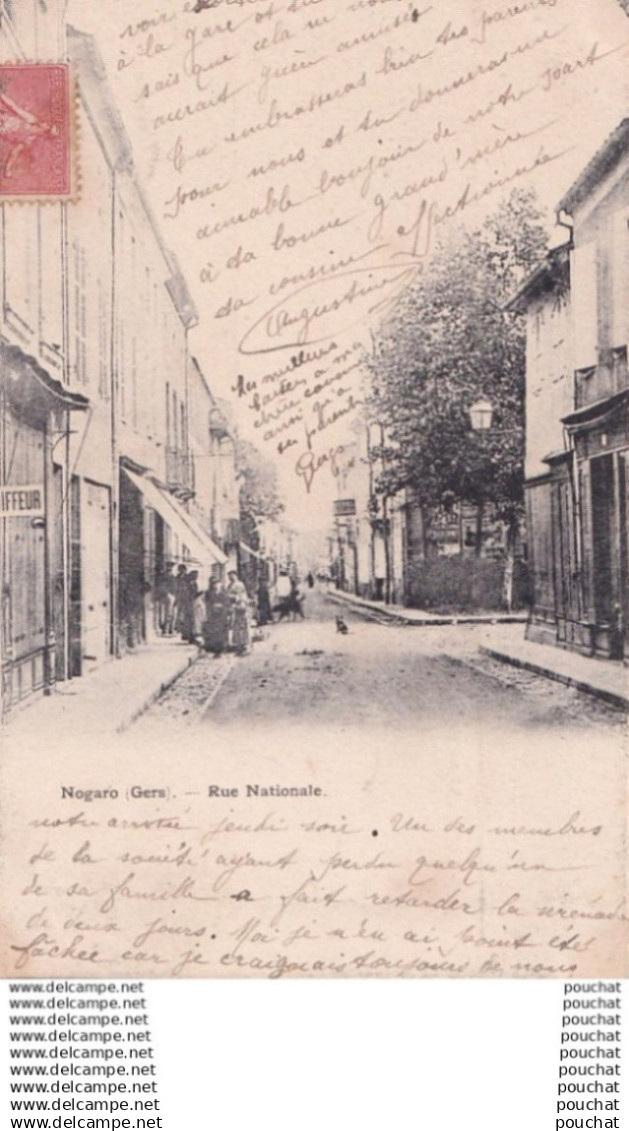 à la gare et
sais que cela ne nous
aurait guère amusés
Tu embrasseras bien tes parents
pour nous et tu donneras un
aimable bonjour de notre part
à ta bonne grand'mère
ta cousine affectionnée
Augustine
Les meilleurs
baisers à ma
chère cousine
ainsi qu'à
ses parents
IFFEUR
Nogaro (Gers). — Rue Nationale.
notre arrivée jeudi soir. Un des membres
de la société ayant perdu quelqu'un
de sa famille a fait retarder la sérénade
de deux jours. Moi je n'en ai point été
fâchée car je craignais toujours de nous
www.delcampe.net pouchat
www.delcampe.net pouchat
www.delcampe.net pouchat
www.delcampe.net pouchat
www.delcampe.net pouchat
www.delcampe.net pouchat
www.delcampe.net pouchat
www.delcampe.net pouchat
www.delcampe.net pouchat